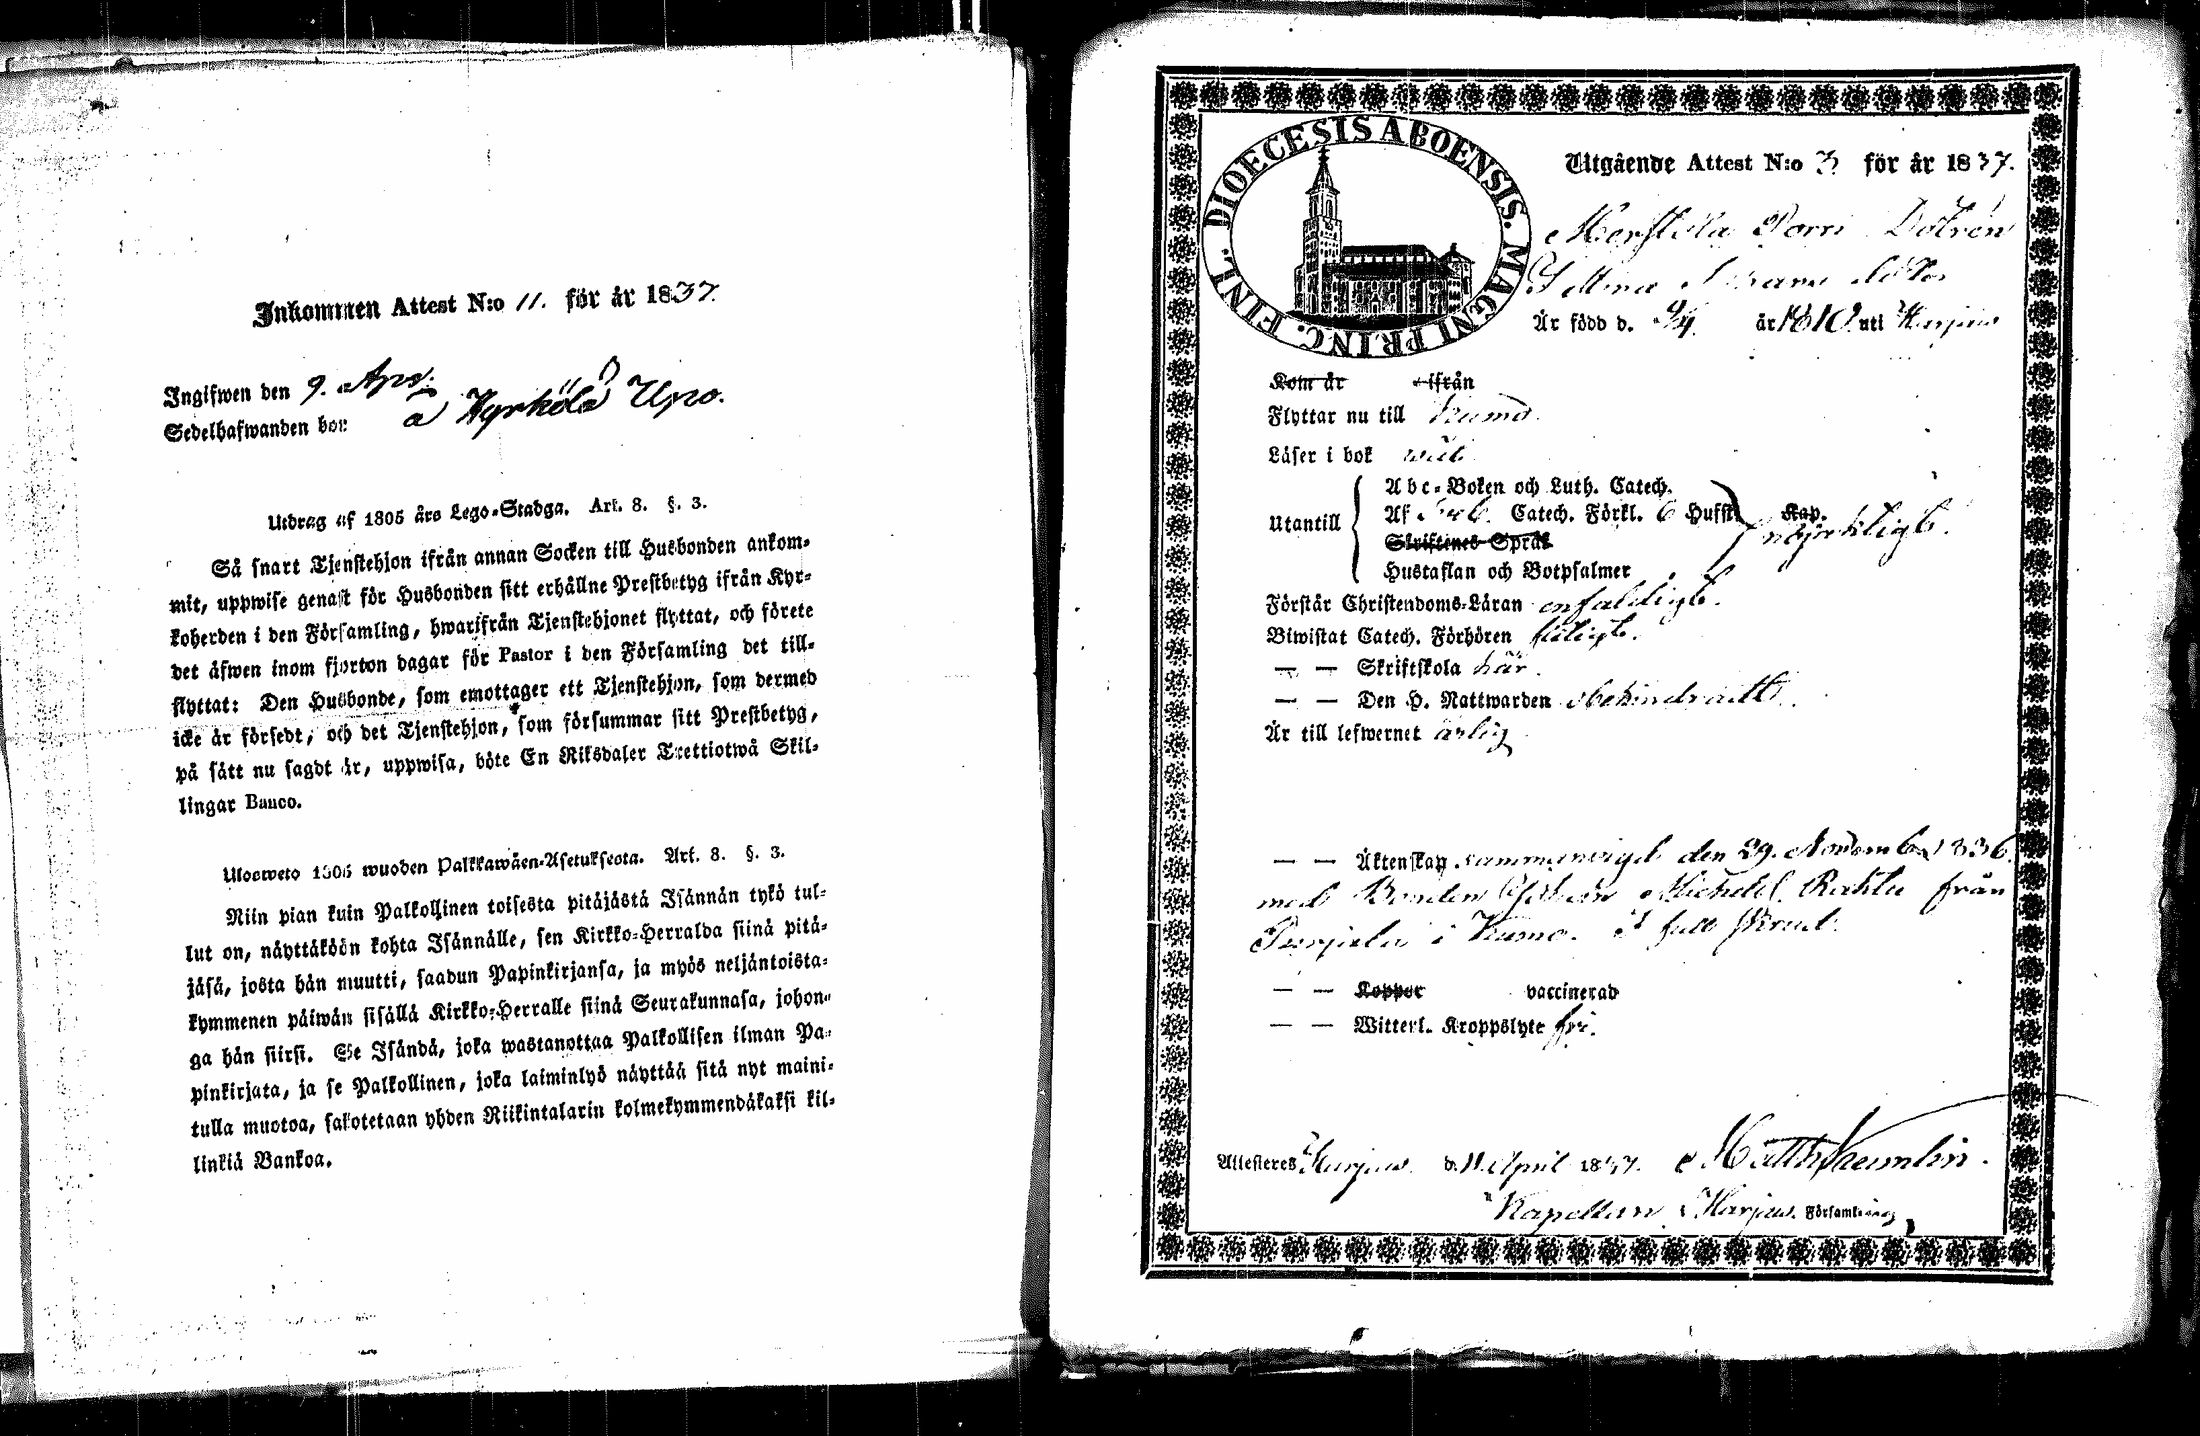 Inkommen Attest N:o 11. för år 1837.
Ingifwen den 9. Apr.
Sedelhafwanden bor á Kyrkölä Upo.
Utdrag af 1805 års Lego-Stadga. Art. 8. §. 3.
Så snart Tjenstehjon ifrån annan Socken till Husbonden ankom-
mit, uppwise genast för Husbonden sitt erhållne Prestbetyg ifrån Kyr-
koherden i den Församling, hwarifrån Tjenstehjonet flyttat, och förete
det äfwen inom fjorton dagar för Pastor i den Församling det till-
flyttat: Den Husbonde, som emottager ett Tjenstehjon, som dermed
icke är försedt, och det Tjenstehjon, som försummar sitt Prestbetyg,
på sätt nu sagdt är, uppwisa, böte En Riksdaler Trettiotwå Skil-
lingar Banco.
Ulosweto 1805 wuoden Palkkawäen-Asetuksesta. Art. 8. §. 3.
Niin pian kuin Palkollinen toisesta pitäjästä Isännän tykö tul-
lut on, näyttäköön kohta Isännälle, sen Kirkko-Herralda siinä pitä-
jäsä, josta hän muutti, saadun Papinkirjansa, ja myös neljäntoista-
kymmenen päiwän sisällä Kirkko-Herralle siinä Seurakunnasa, johon-
ga hän siirsi. Se Isändä, joka wastanottaa Palkollisen ilman Pa-
pinkirjata, ja se Palkollinen, joka laiminlyö näyttää sitä nyt maini-
tulla muotoa, sakotetaan yhden Riikintalarin kolmekymmendäkaksi kil-
linkiä Bankoa.
DIOECESIS ABOENSIS. MAGNI PRINC. FINL.
Utgående Attest N:o 3 för år 1837.
Porri Dotren
Är född d. år 1810 uti Harjus
Kom år ifrån
Flyttar nu till Kumo
Läser i bok wäl
Utantill
Abc-Boken och Luth. Catech.
Af Catech. Förkl. 6 Hufst. Kap.
Skriftenes Språk
Hustaflan och Botpsalmer nöjaktligt.
Förstår Christendoms-Läran enfaldigt.
Biwistat Catech. Förhören flitigt.
— — Skriftskola här.
— — Den H. Nattwarden obehindradt.
Är till lefwernet ärlig
— — Äktenskap sammanvigd den 29. November 1836
med Bonden Michel från
i Kumo.
— — Koppor vaccinerad
— — Witterl. Kroppslyte fri.
Attesteres Harjus d. 11 April 1837. Matth
Kapellan i Harjus. Församling